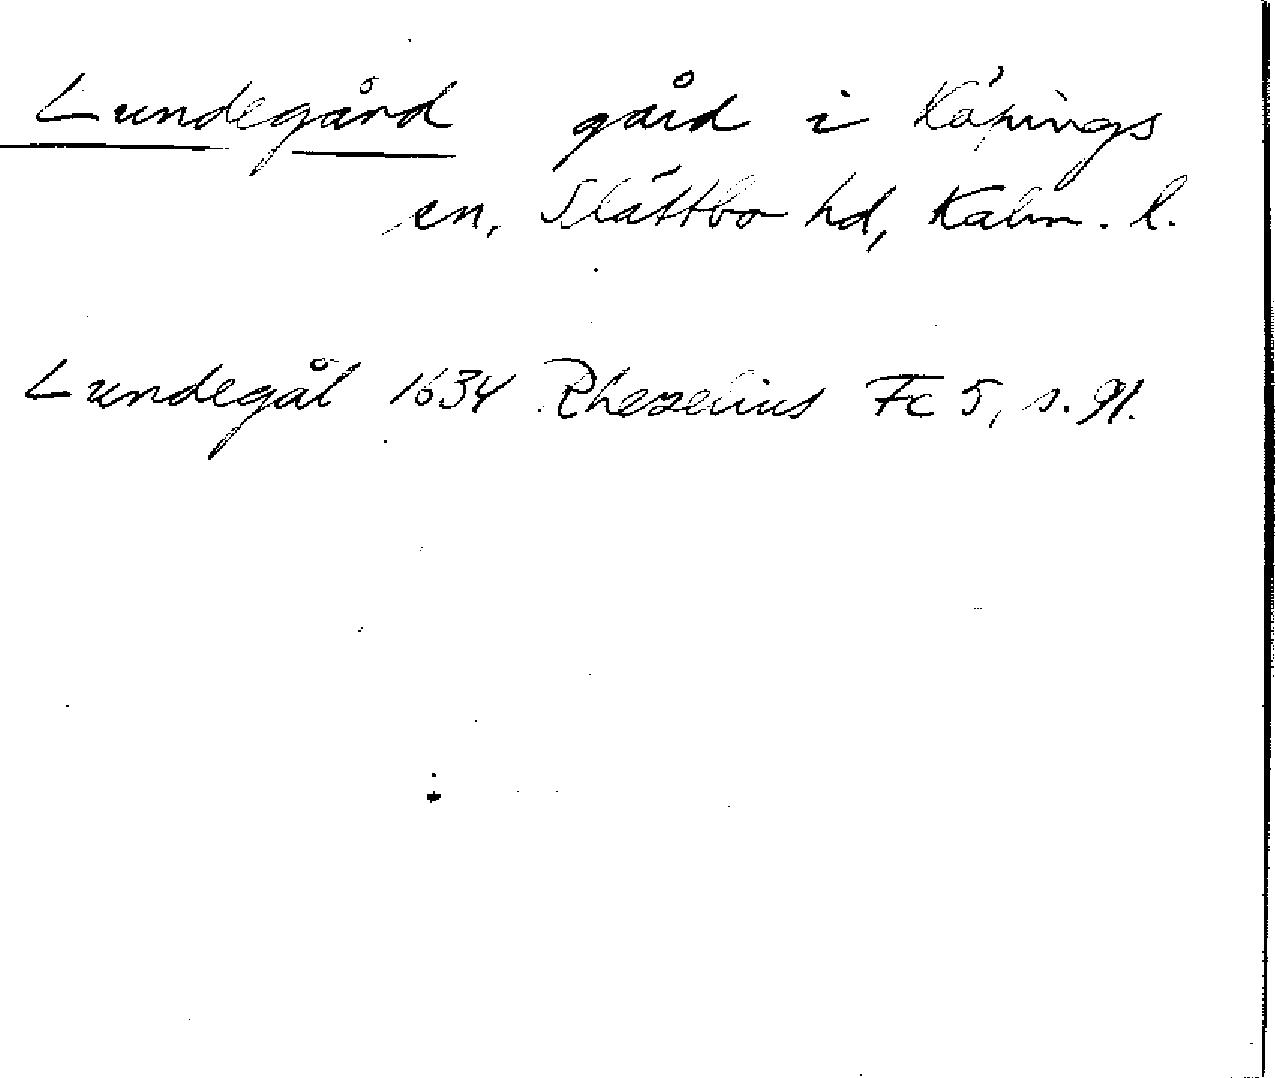 Lundegård gård i Köpings
sn, Slättbo hd, Kalm. l.
Lundegål 1634 Rhezelius Fc 5, s. 91.